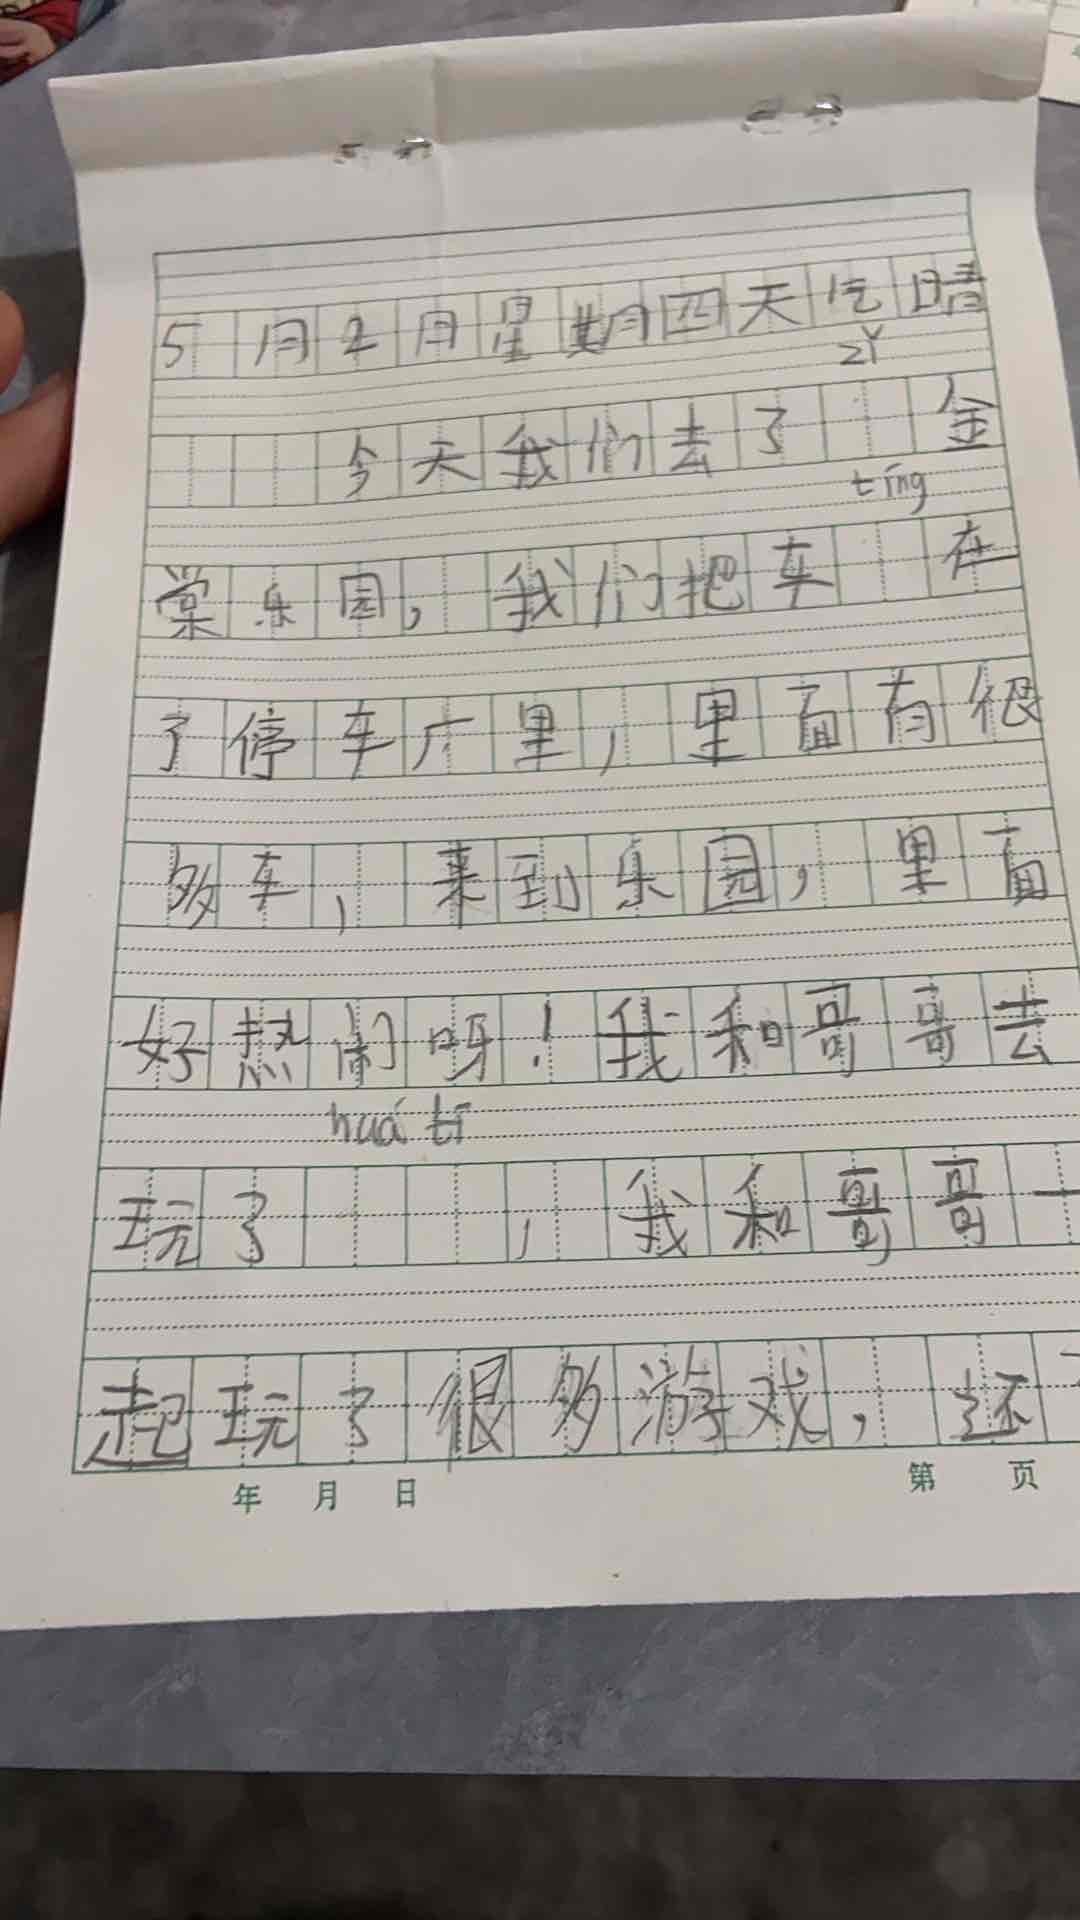 5月2月星期四天气晴
zǐ
今天我们去了 金
tíng
棠乐园，我们把车 在
了停车广里，里面有很
多车，来到乐园，里面
好热闹呀！我和哥哥去
huá tī
玩了 ，我和哥哥一
起玩了很多游戏，还
年 月 日 第 页